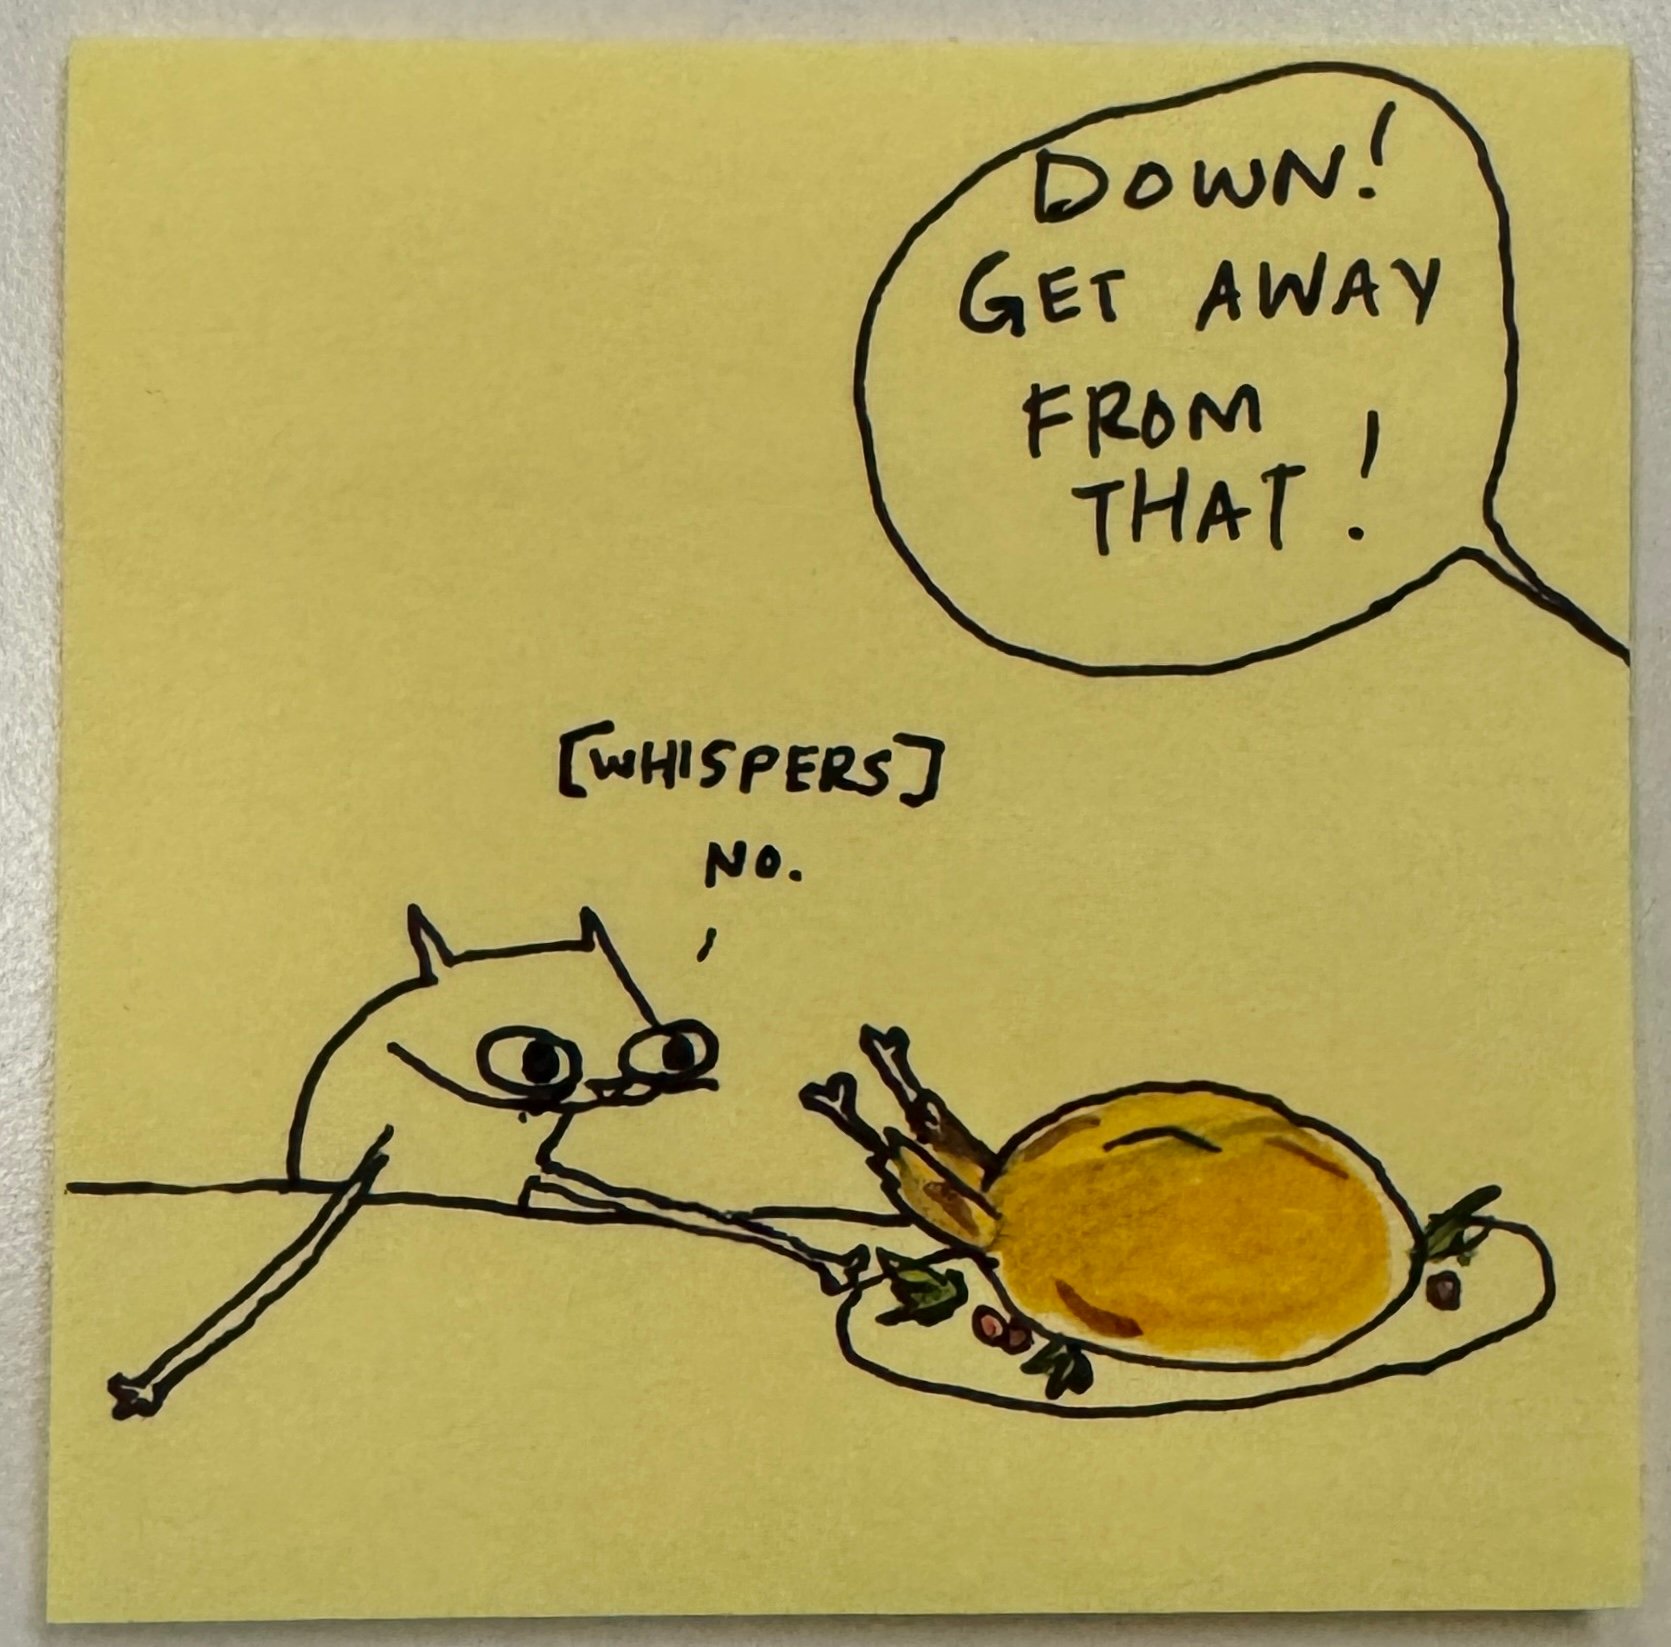 DOWN!
GET AWAY
FROM
THAT!
[WHISPERS]
NO.